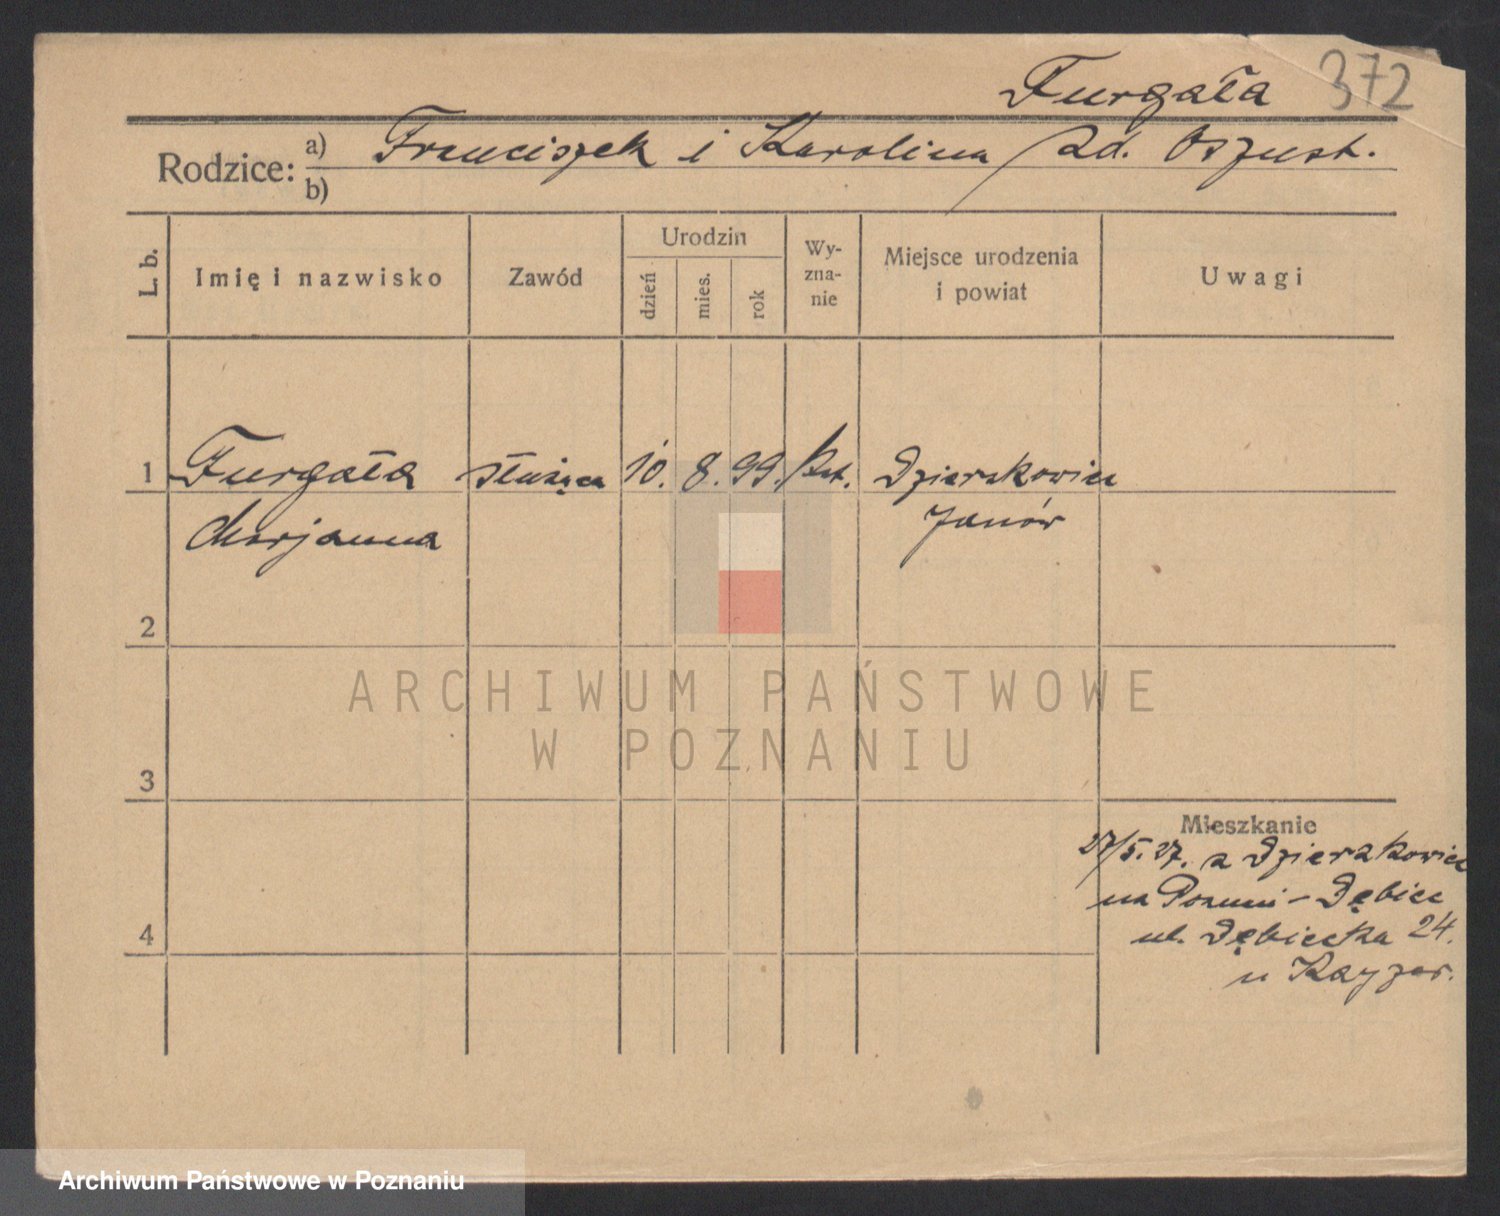 Furgała 372
Rodzice: a) Franciszek i Karolina zd. Oszust.
b)
L. b. Imię i nazwisko Zawód Urodzin dzień mies. rok Wyznanie Miejsce urodzenia i powiat Uwagi
1 Furgała służąca 10. 8. 99. kat. Dzierzkowice
Marjanna Janów
2
ARCHIWUM PAŃSTWOWE
W POZNANIU
3
Mieszkanie
27/5.27. z Dzierzkowice
na Poznań-Dębiec
4
ul. Dębiecka 24.
u Kayzer.
Archiwum Państwowe w Poznaniu